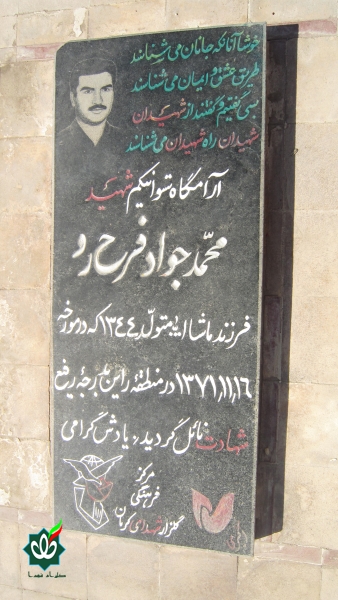 خوشا آنانکه جانان می شناسند
طریق عشق و ایمان می شناسند
بسی گفتیم و گفتند از شهیدان
شهیدان راه شهیدان می شناسند
آرامگاه ستوانیکم شهید
محمد جواد فرح رو
فرزند ماشااله متولد ۱۳۴۴ که در مورخه
۱۳۷۱,۱۱,۱۶ در منطقه راین بدرجه رفیع
شهادت نائل گردید, یادش گرامی
مرکز
فرهنگی
گلزار شهدای کرمان